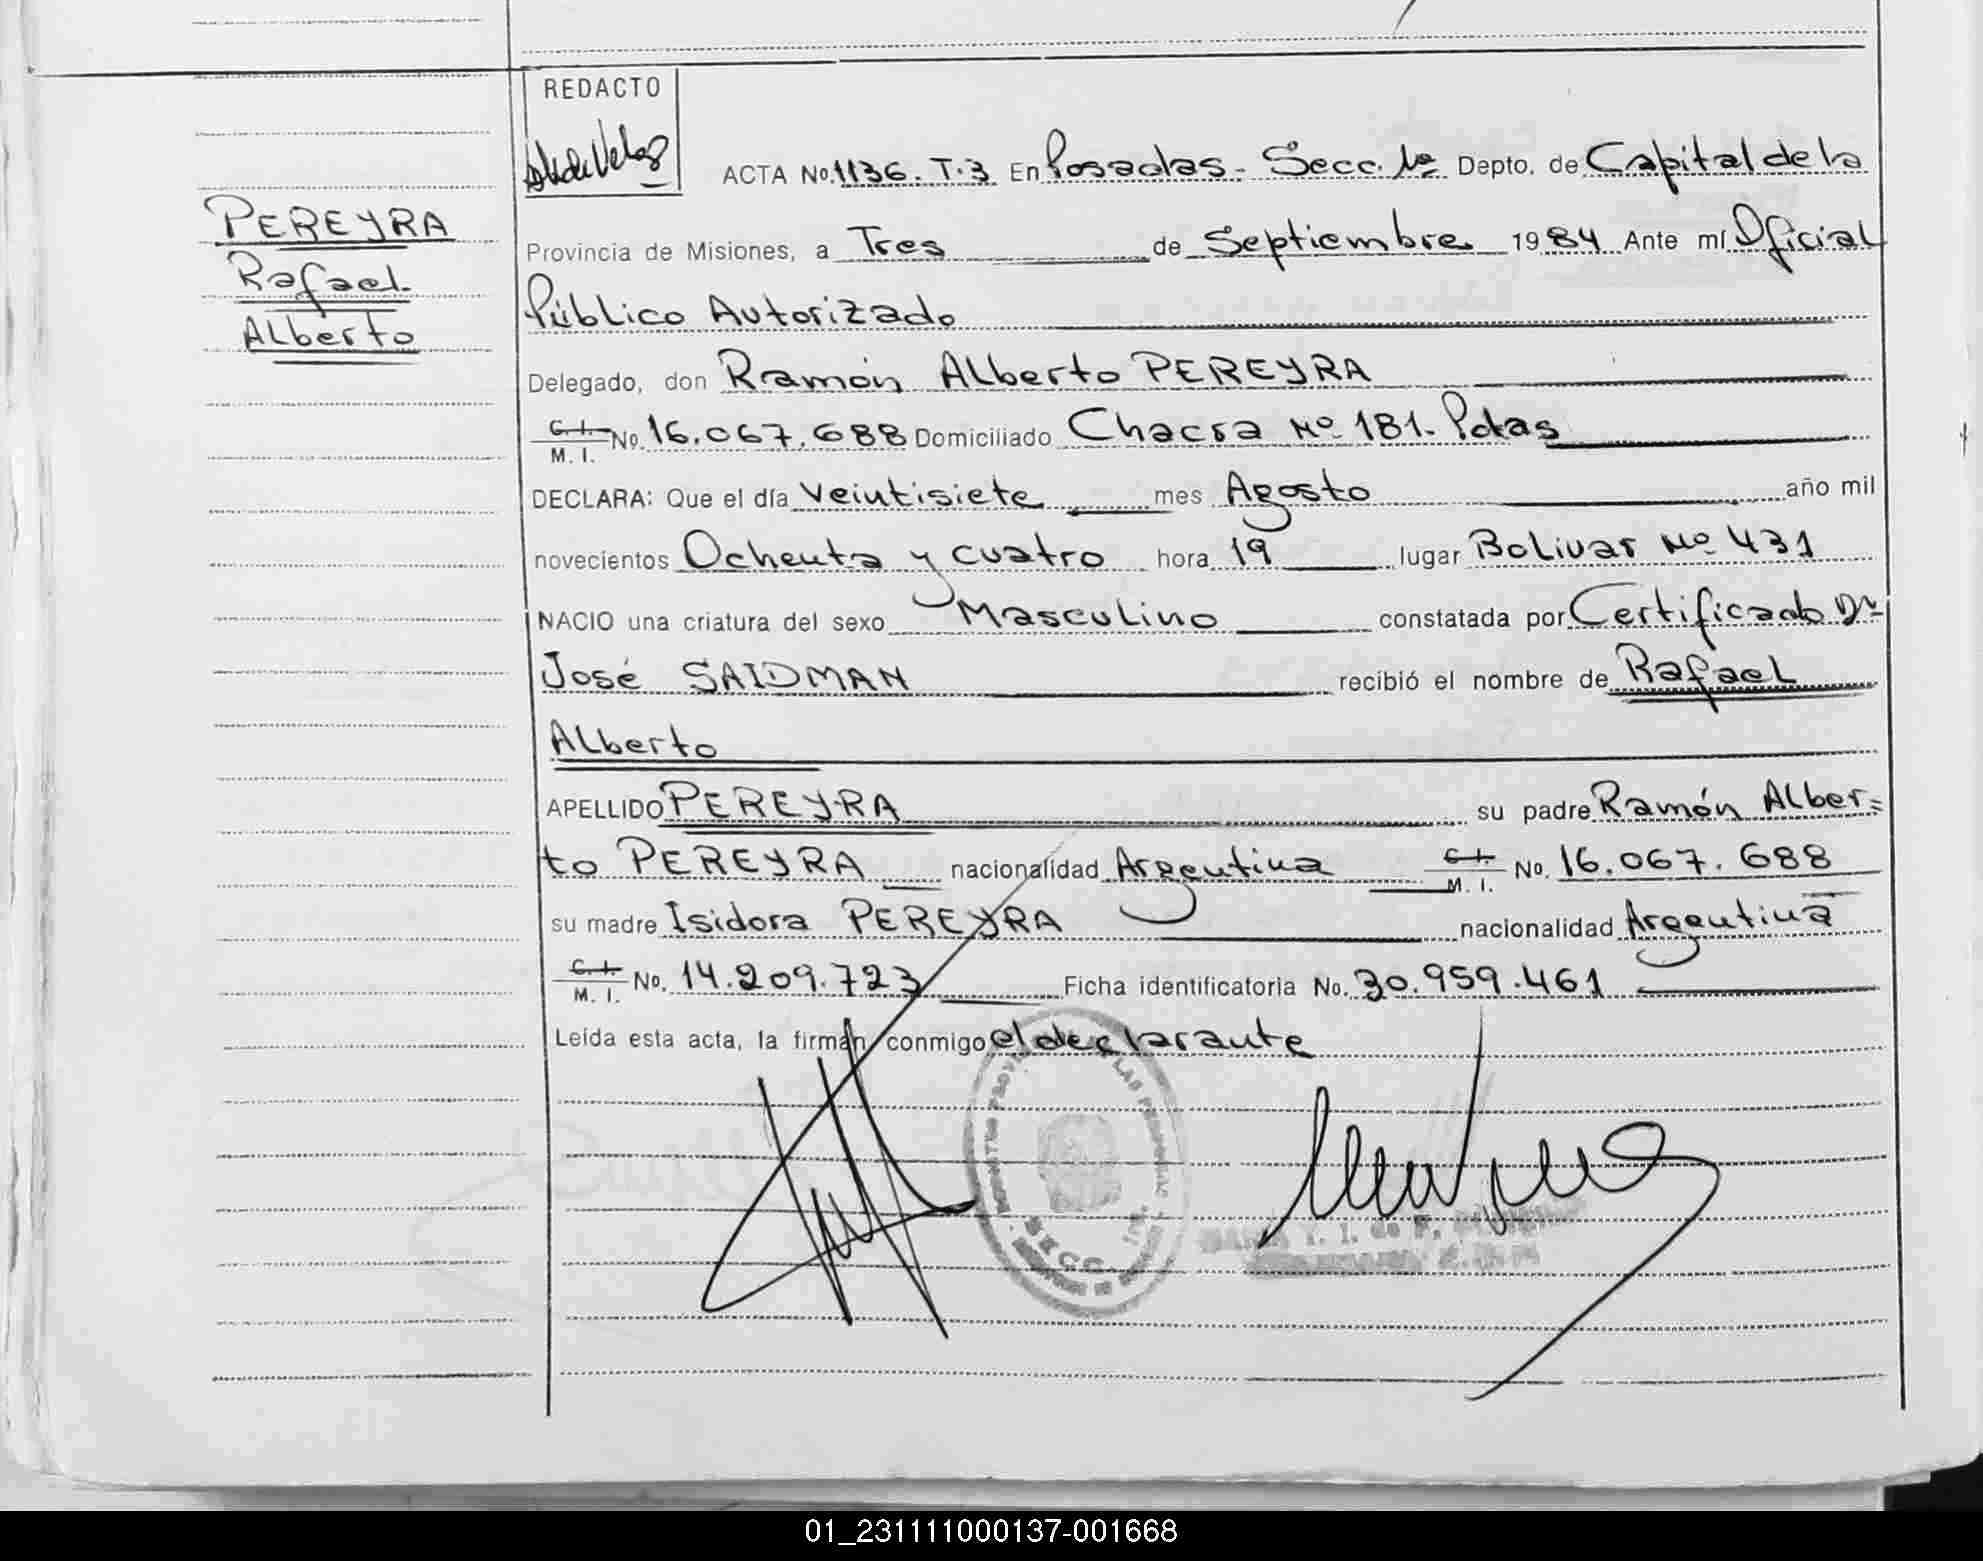 REDACTO
ACTA No. 1136. T.3 En Posadas - Secc. 1ª Depto. de Capital de la
PEREYRA
Rafael
Alberto
Provincia de Misiones, a Tres de Septiembre 1984 Ante mí Oficial
Público Autorizado
Delegado, don Ramón Alberto PEREYRA
C. I.
M. I. No. 16.067.688 Domiciliado Chacra Nº 181. Pdas
DECLARA: Que el día veintisiete mes Agosto año mil
novecientos Ochenta y cuatro hora 19 lugar Bolivar Nº 431
NACIO una criatura del sexo Masculino constatada por Certificado Dr
José SAIDMAN recibió el nombre de Rafael
Alberto
APELLIDO PEREYRA su padre Ramón Alber=
to PEREYRA nacionalidad Argentina C. I.
M. I. No. 16.067.688
su madre Isidora PEREYRA nacionalidad Argentina
C. I.
M. I. No. 14.209.723 Ficha identificatoria No. 30.959.461
Leída esta acta, la firman conmigo el declarante
SECC.
01_231111000137-001668